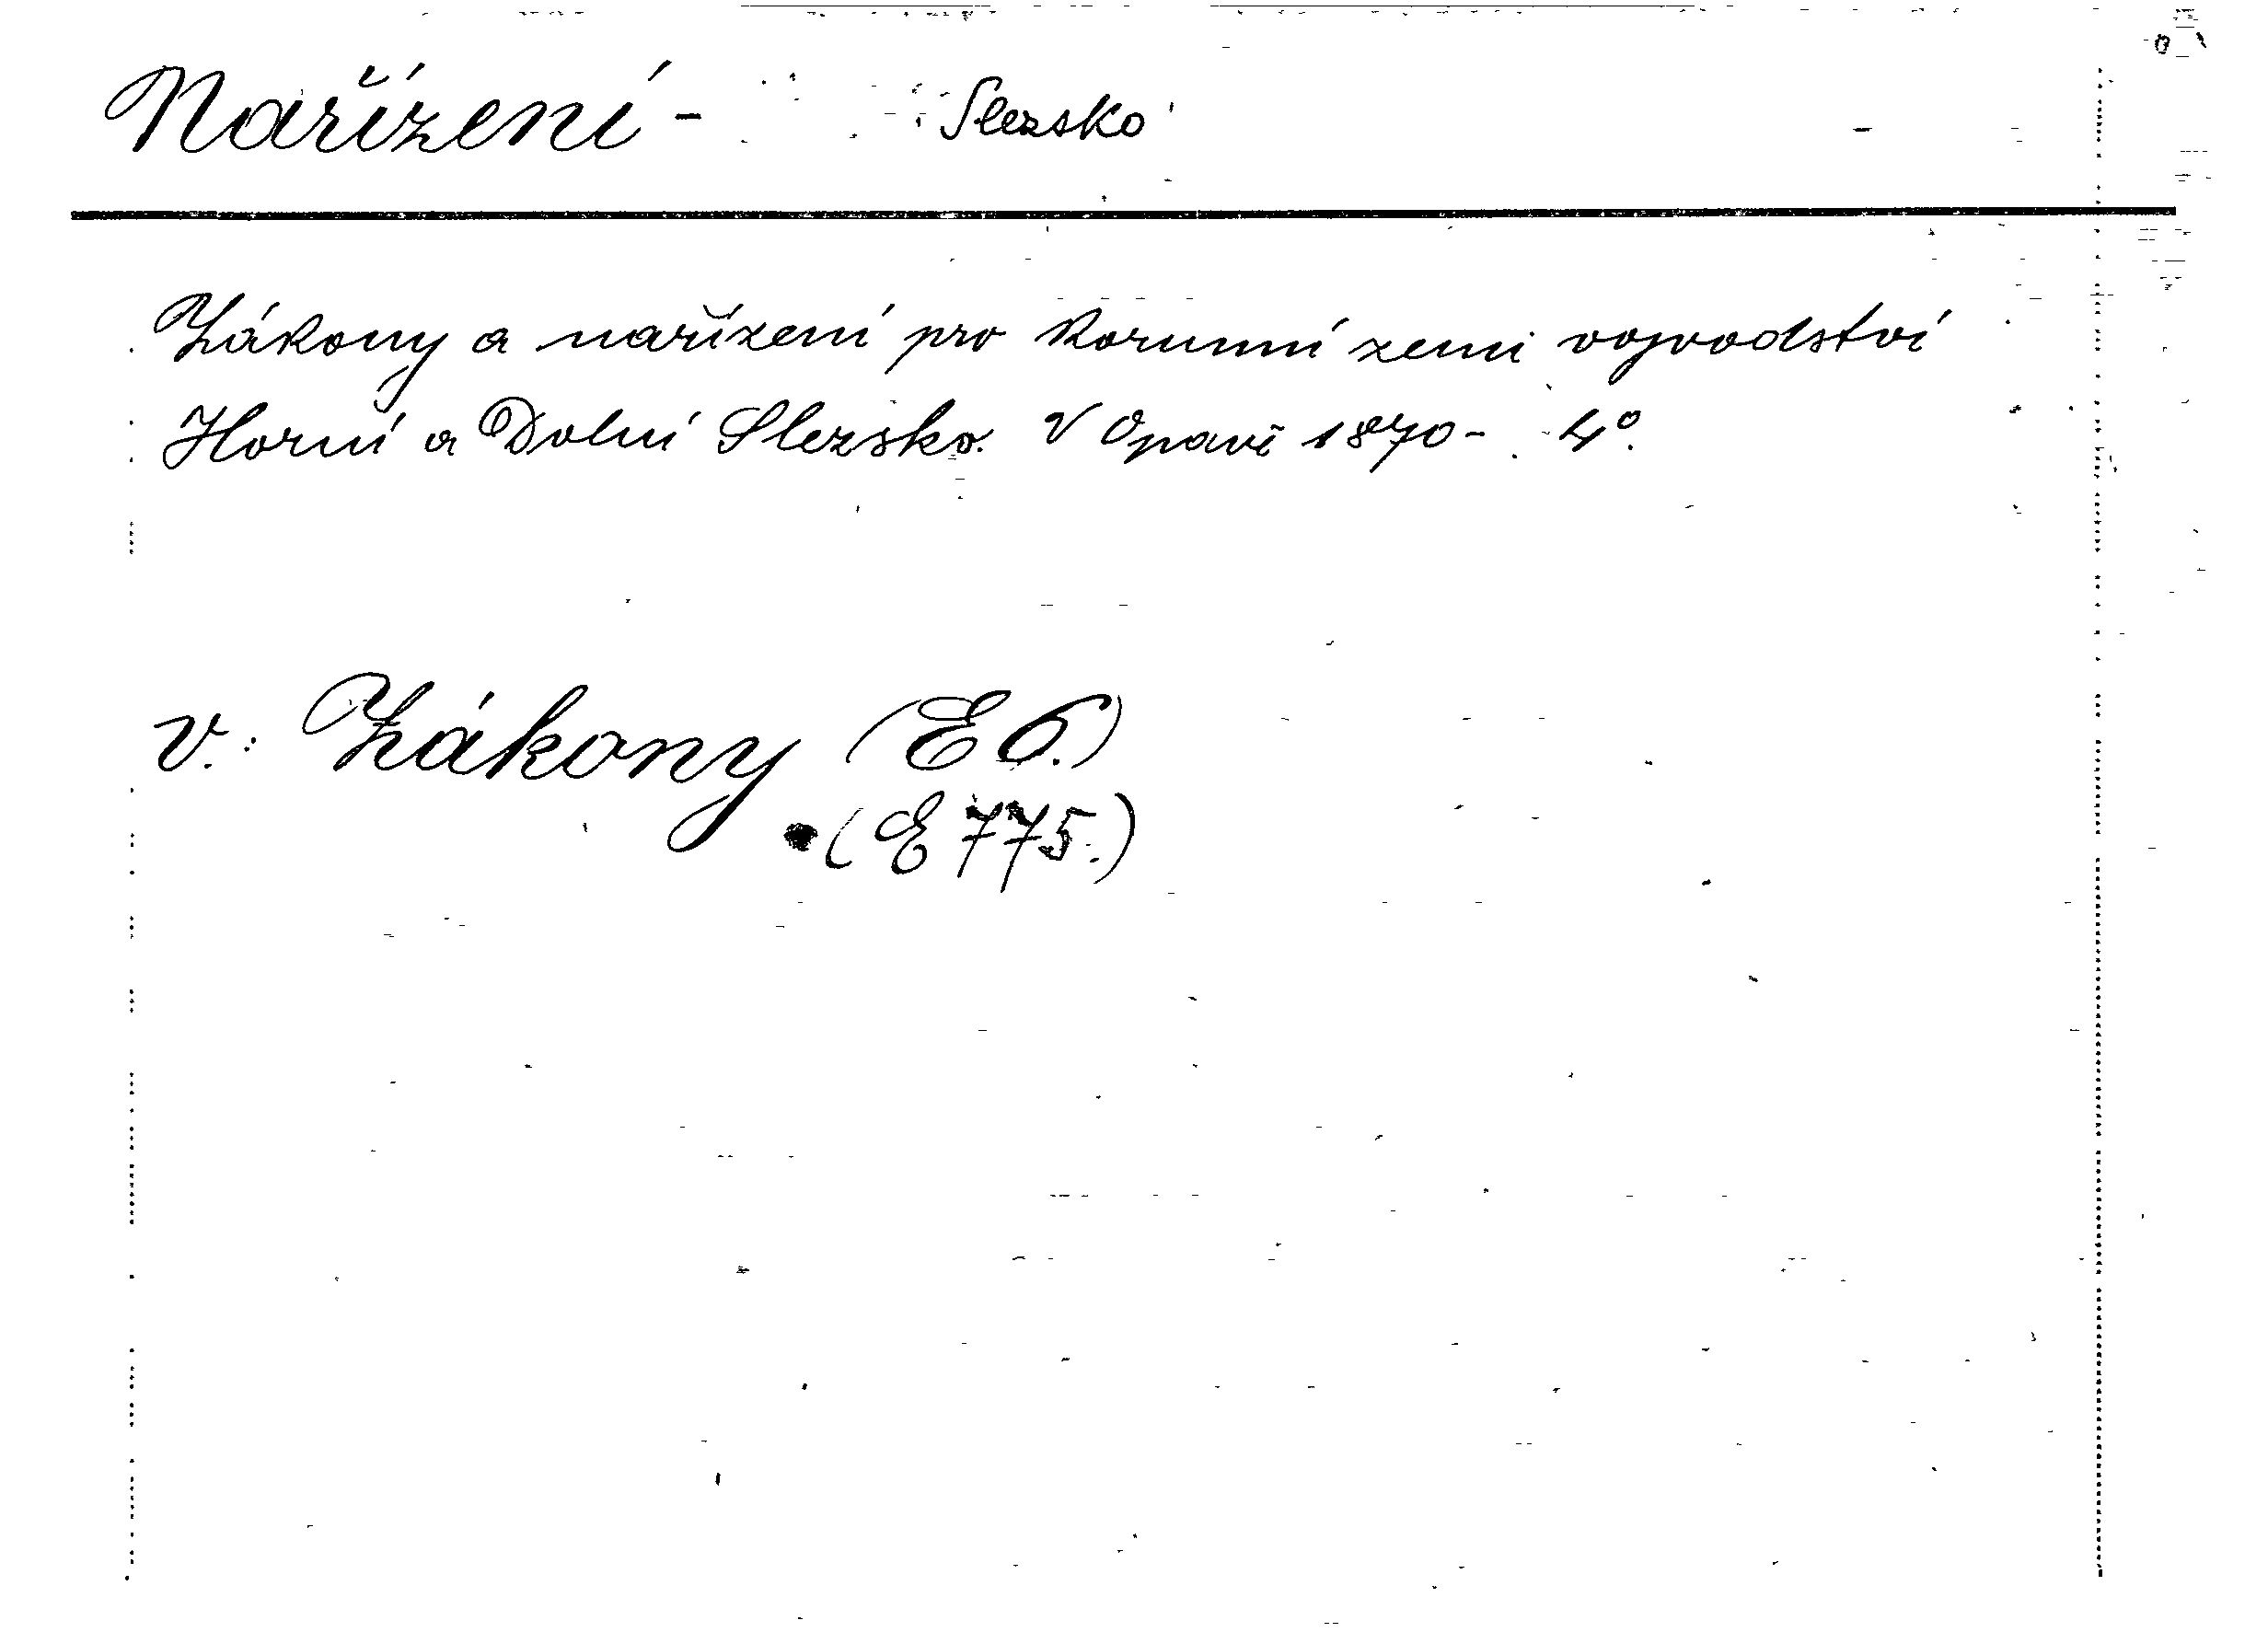 Nařízení - Slezsko
Zákony a nařízení pro korunní zemi vojvodství
Horní a Dolní Slezsko. V Opavě 1870- . 4°.
v. Zákony (E 6.)
(E 775.)